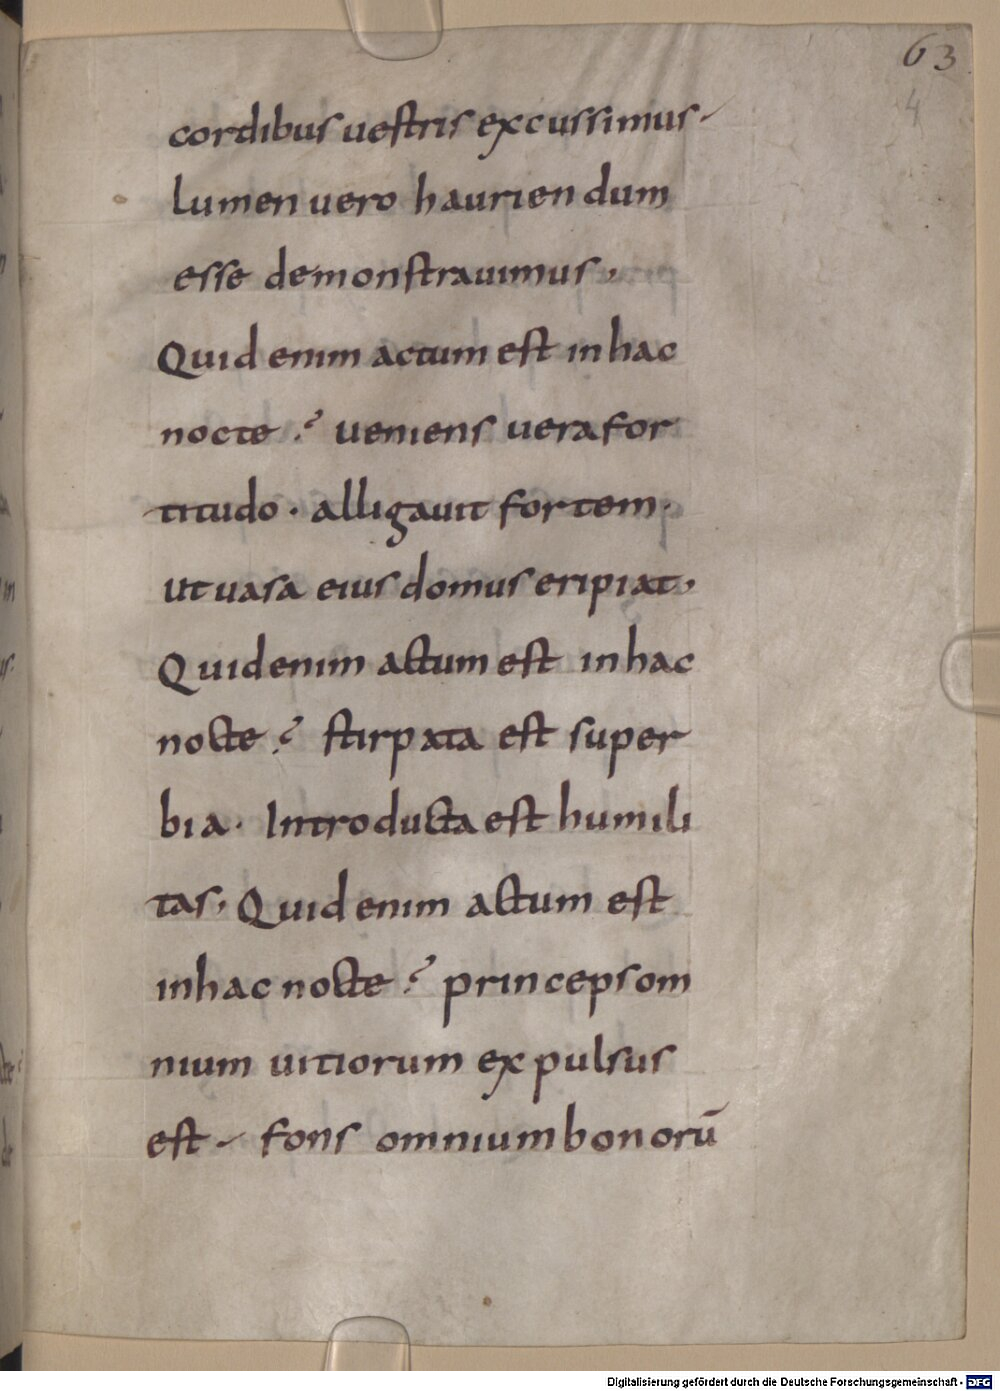 63
4
cordibus uestris excussimus.
lumen uero hauriendum
esse demonstrauimus,
Quid enim actum est in hac
nocte? ueniens uera for
titudo. alligauit fortem.
Ut uasa eius domus eripiat,
Quid enim actum est in hac
nocte? stirpata est super
bia. Introducta est humili
tas, Quid enim actum est
in hac nocte? princeps om
nium uitiorum expulsus
est. fons omnium bonorū
Digitalisierung gefördert durch die Deutsche Forschungsgemeinschaft - DFG